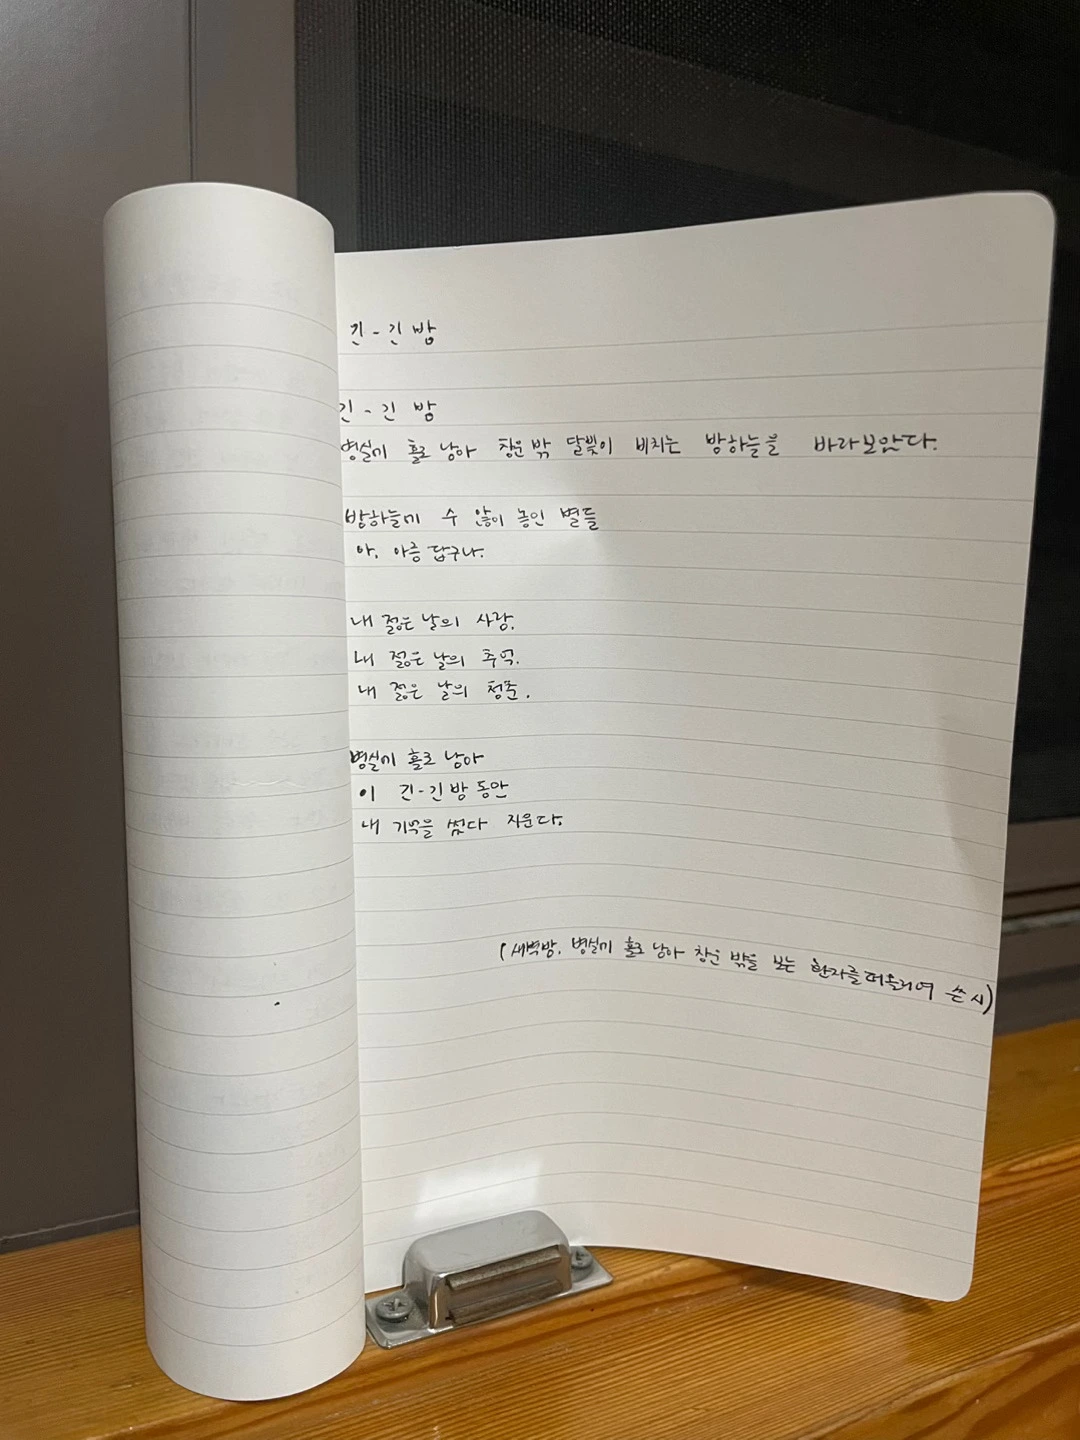 긴-긴 밤
긴-긴 밤
병실에 홀로 남아 창문 밖 달빛이 비치는 밤하늘을 바라보았다.
밤하늘에 수 많이 놓인 별들
아, 아름답구나.
내 젊은 날의 사랑,
내 젊은 날의 추억,
내 젊은 날의 청춘.
병실에 홀로 남아
이 긴-긴 밤 동안
내 기억을 썼다 지운다.
(새벽밤, 병실에 홀로 남아 창문 밖을 보는 환자를 떠올리며 쓴 시)